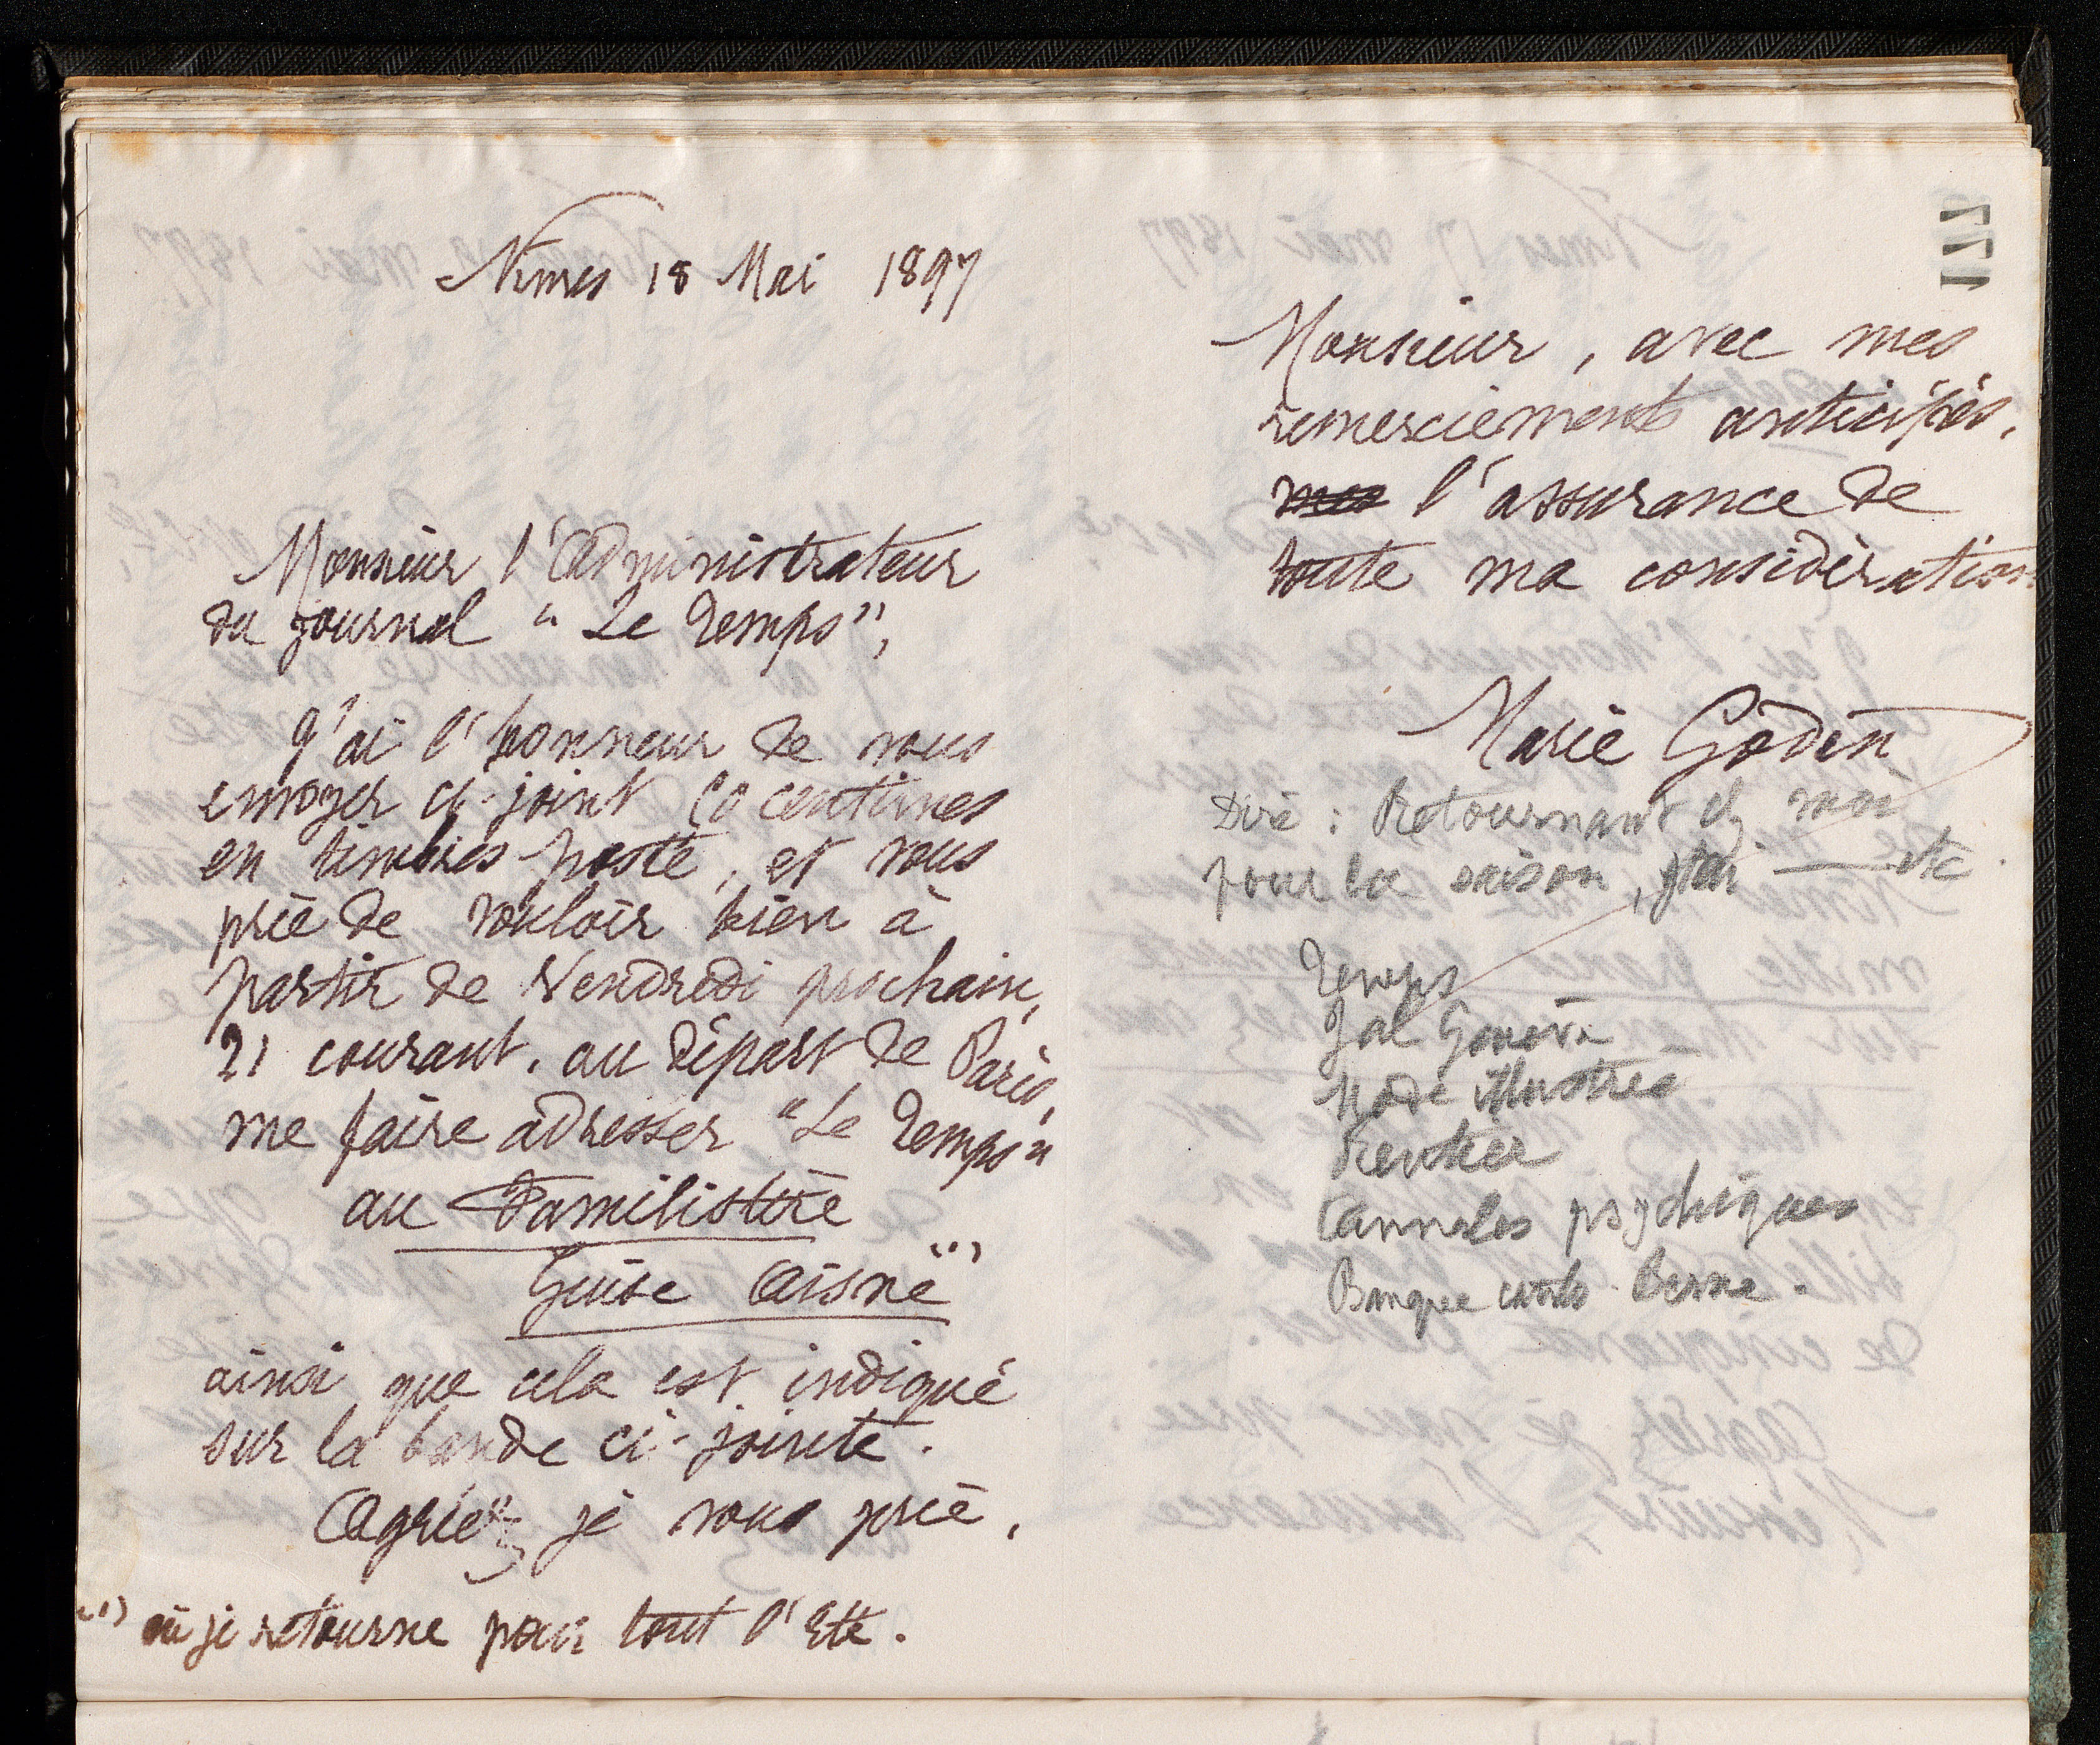 Nîmes 18 Mai 1897
Monsieur l'Administrateur
du journal "Le Temps",
J'ai l'honneur de vous
envoyer ci-joint 60 centimes
en timbres poste, et vous
prie de vouloir bien à
partir de Vendredi prochain,
21 courant, au départ de Paris,
me faire adresser "Le Temps"
au Familistère
Guise Aisne (1)
ainsi que cela est indiqué
sur la bande ci-jointe.
Agréez, je vous prie,
(1) où je retourne pour tout l'Eté.
177
Monsieur, avec mes
remerciements anticipés,
mes l'assurance de
toute ma considération
Marie Godin
Dire : Retournant ch moi
pour la saison, etc
Temps
Jal Genève
Mode illustrée
Rentier
Annales psychiques
Banque Berne.